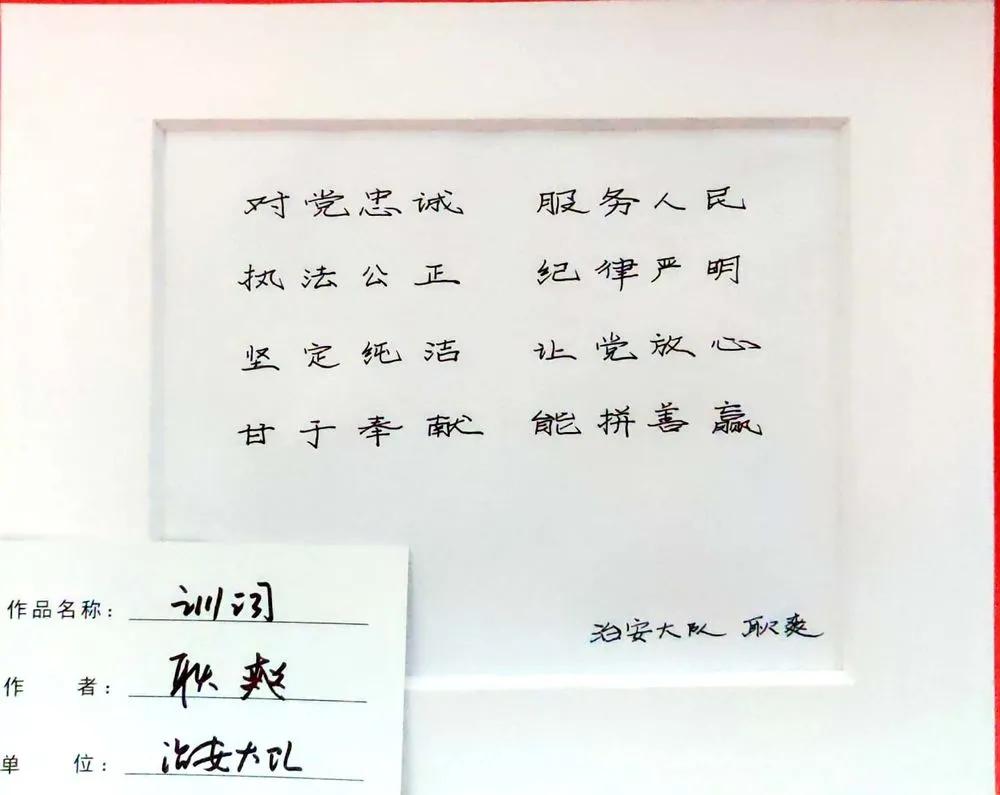 对党忠诚 服务人民
执法公正 纪律严明
坚定纯洁 让党放心
甘于奉献 能拼善赢
治安大队 耿爽
作品名称： 训词
作者： 耿爽
单位： 治安大队